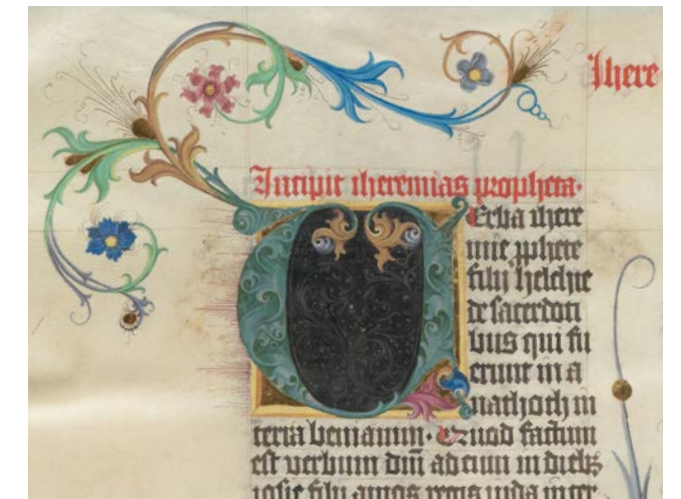 Ihere
Incipit iheremias propheta·
Verba ihere
mie pphete
filij helchie
de sacerdoti
bus qui fu
erunt in a
nathoth in
terra beniamin· Quod factum
est verbum dni ad eum in dieb3
iosie filij amos regis iuda in ter